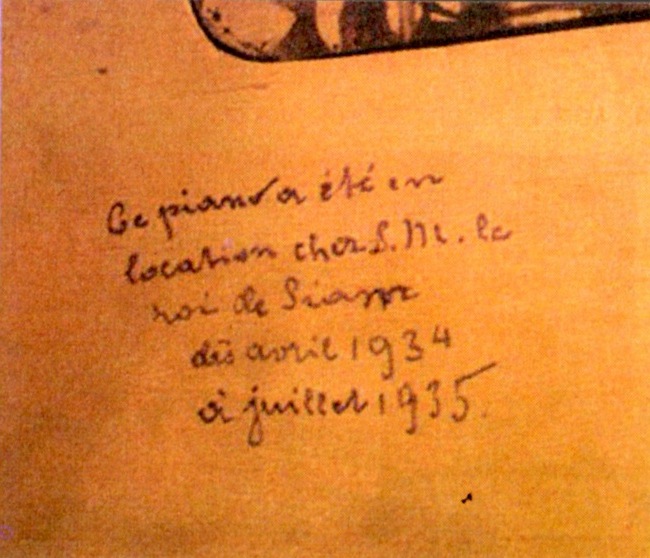 Ce piano a été en
location chez S.M. le
roi de Siam
dès avril 1934
à juillet 1935.